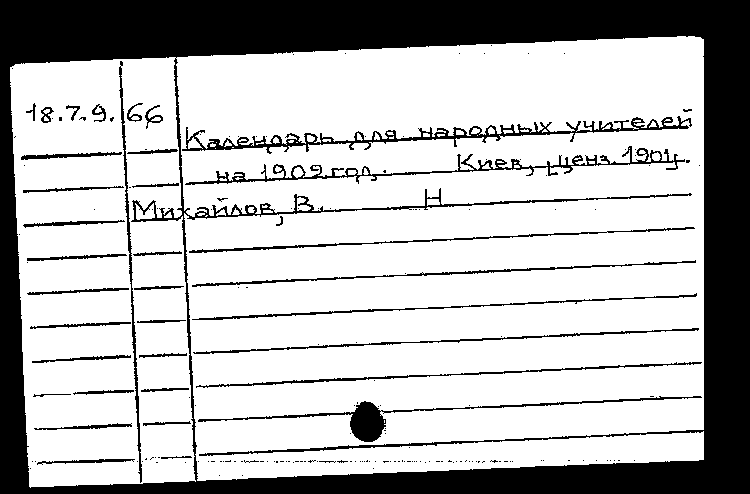 18.7.9. 66
Календарь для народных учителей
на 1902 год. Киев, ценз. 1901.
Михайлов, В. Н